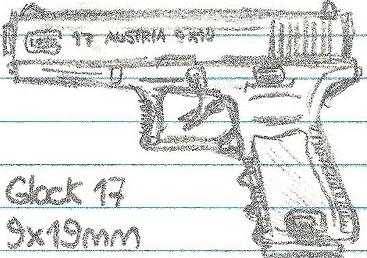 17 AUSTRIA 9X19
Glock 17
9x19mm